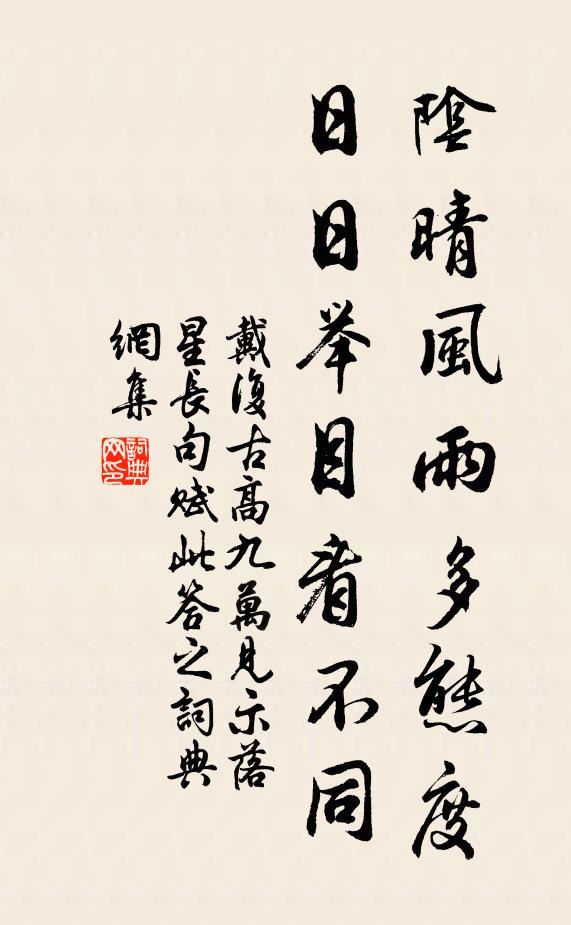 陰晴風雨多態度
日日举目看不同
戴復古高九萬見示落
星長句賦此答之詞典
網集
詞典
网印